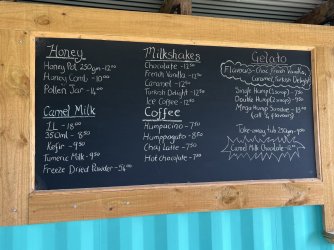 Honey
Honey Pot 250gm - 12.00
Honey Comb - 10.00
Pollen Jar - 14.00
Camel Milk
1L - 18.00
350ml - 8.50
Kefir - 9.50
Tumeric Milk - 9.50
Freeze Dried Powder - 54.00
Milkshakes
Chocolate - 12.50
French Vanilla - 12.50
Caramel - 12.50
Turkish Delight - 12.50
Ice Coffee - 12.50
Coffee
Humpacino - 7.50
Humppagato - 8.50
Chai Latte - 7.50
Hot chocolate - 7.00
Gelato
Flavours - Choc, French Vanilla,
Caramel, Turkish Delight
Single Hump (1 scoop) - 7.50
Double Hump (2 scoop) - 9.50
Mega Hump Sundae - 15.00
(all 4 flavours)
Take-away tub 250gm - 9.00
Camel Milk Chocolate